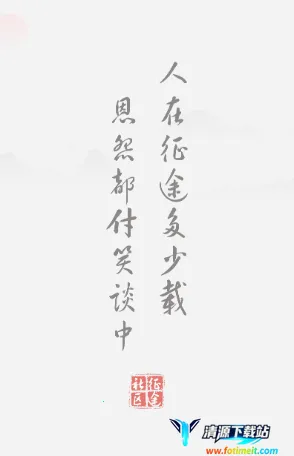 人在征途多少载
恩怨都付笑谈中
征途
社区
清源下载站
www.fotimeit.com